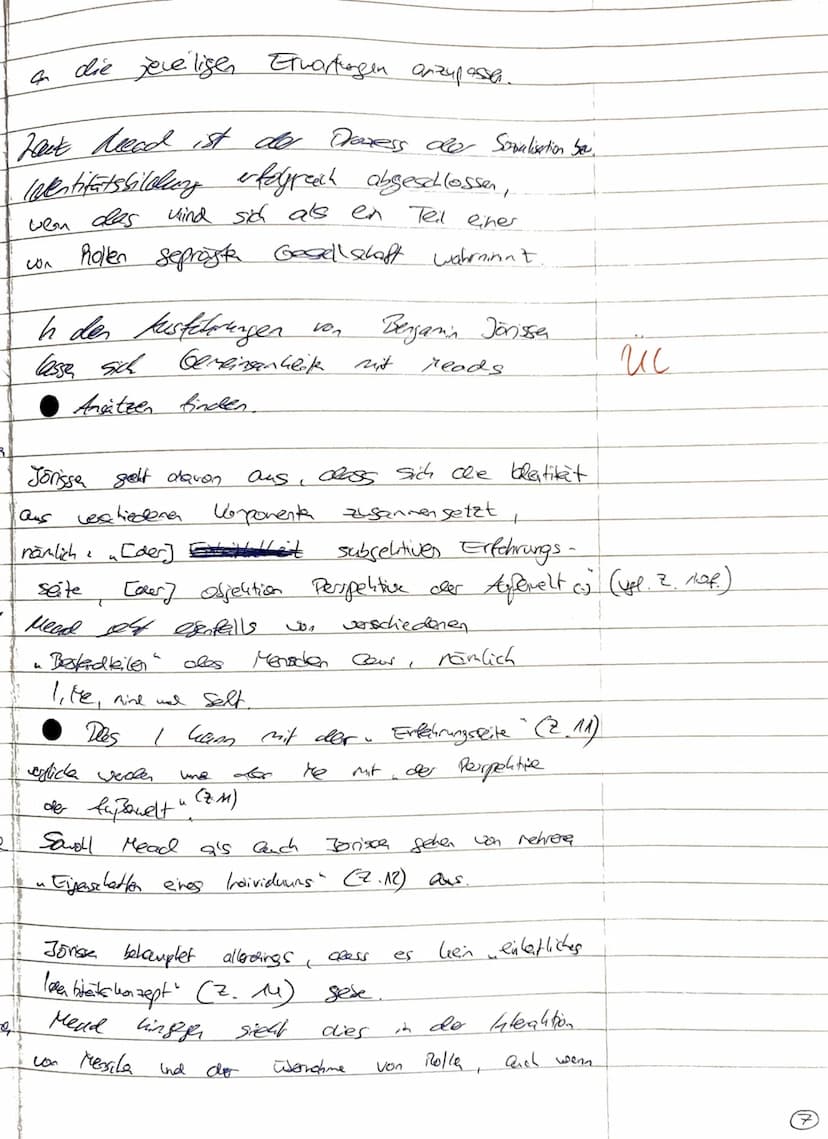 an die jeweiligen Erwartungen anzupassen.
Laut Mead ist der Prozess der Sozialisation bzw.
Identitätsbildung erfolgreich abgeschlossen,
wenn das Kind sich als ein Teil einer
von Rollen geprägte Gesellschaft wahrnimmt.
In den Ausführungen von Benjamin Jörissen
lassen sich Gemeinsamkeiten mit Meads
Ansätzen finden.
ÜL
Jörissen geht davon aus, dass sich die Identität
aus verschiedenen Komponenten zusammensetzt,
nämlich: „[der] subjektiven Erfahrungs-
seite, [der] objektiven Perspektive der Außenwelt (.)" (vgl. Z. 10f.)
Mead geht ebenfalls von verschiedenen
„Bestandteilen" des Menschen aus, nämlich
I, Me, Mind und Self.
Das I kann mit der „Erfahrungsseite" (Z. 11)
verglichen werden und der Me mit „der Perspektive
der Außenwelt". (Z. 11)
Sowohl Mead als auch Jörissen gehen von mehrere
„Eigenschaften eines Individuums" (Z. 12) aus.
Jörissen behauptet allerdings, dass es kein „einheitliches
Identitätskonzept" (Z. 14) gebe.
Mead hingegen sieht dies in der Interaktion
von Menschen und der Übernahme von Rollen, auch wenn
7